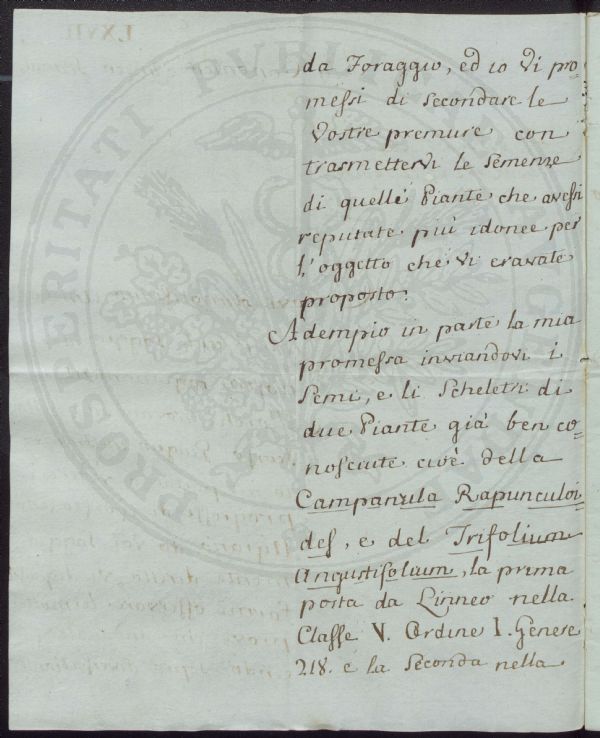 LXVII
da Foraggio, ed io vi pro=
messi di secondare le
vostre premure con
trasmettervi le semenze
di quelle Piante che avessi
reputate più idonee per
l'oggetto che vi eravate
proposto.
Adempio in parte la mia
promessa inviandovi i
semi, e li scheletri di
due Piante già ben co=
nosciute cioè della
Campanula Rapunculoi=
des, e del Trifolium
Angustifolium, la prima
posta da Linneo nella
Classe V. Ordine I. Genere
218. e la seconda nella
PROSPERITATI PUBLICAE AUGENDAE